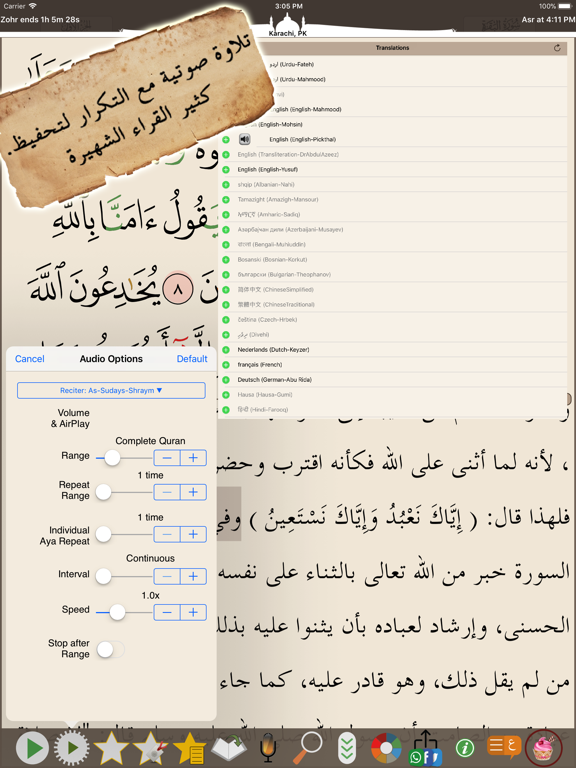 Carrier 3:05 PM 100%
Zohr ends 1h 5m 28s Asr at 4:11 PM
Karachi, PK
تلاوة صوتية مع التكرار لتحفيظ.
كثير القراء الشهيرة
Translations
اردو (Urdu-Fateh)
(Urdu-Mahmood)
English (English-Mahmood)
(English-Mohsin)
English (English-Pickthal)
English (Transliteration-DrAbdulAzeez)
English (English-Yusuf)
shqip (Albanian-Nahi)
Tamazight (Amazigh-Mansour)
አማርኛ (Amharic-Sadiq)
Азәрбајҹан дили (Azerbaijani-Musayev)
বাংলা (Bengali-Muhiuddin)
Bosanski (Bosnian-Korkut)
български (Bulgarian-Theophanov)
简体中文 (ChineseSimplified)
繁體中文 (ChineseTraditional)
čeština (Czech-Hrbek)
(Divehi)
Nederlands (Dutch-Keyzer)
français (French)
Deutsch (German-Abu Rida)
Hausa (Hausa-Gumi)
हिन्दी (Hindi-Farooq)
يَقُولُ ءَامَنَّا بِٱللَّهِ
٨ يُخَٰدِعُونَ ٱللَّهَ
Cancel Audio Options Default
Reciter: As-Sudays-Shraym ▼
Volume
& AirPlay
Complete Quran
Range
1 time
Repeat
Range
1 time
Individual
Aya Repeat
Continuous
Interval
1.0x
Speed
Stop after
Range
، لأنه لما أثنى على الله فكأنه اقترب وحضر
فلهذا قال: ( إِيَّاكَ نَعْبُدُ وَإِيَّاكَ نَسْتَعِينُ ) وفي
السورة خبر من الله تعالى بالثناء على نفسه
الحسنى، وإرشاد لعباده بأن يثنوا عليه بذلك
من لم يقل ذلك، وهو قادر عليه، كما جاء